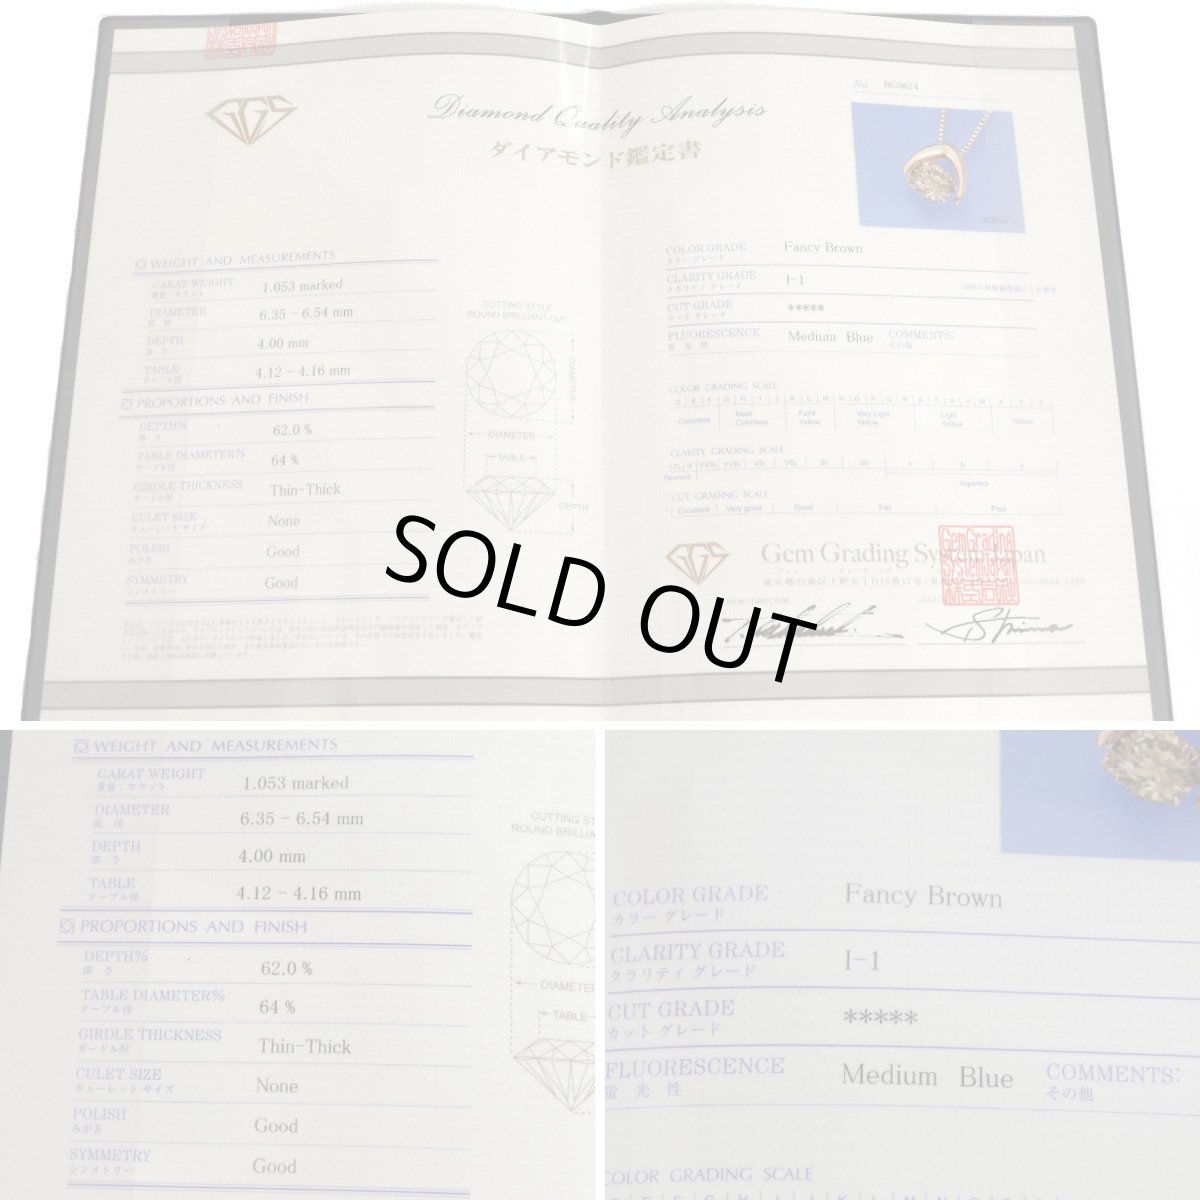 GGS
Diamond Quality Analysis
ダイアモンド鑑定書
No. BG9624
WEIGHT AND MEASUREMENTS
CARAT WEIGHT 1.053 marked
重量:カラット
DIAMETER 6.35 - 6.54 mm
直 径
DEPTH 4.00 mm
深 さ
TABLE 4.12 - 4.16 mm
テーブル径
PROPORTIONS AND FINISH
DEPTH% 62.0 %
深 さ
TABLE DIAMETER% 64 %
テーブル径
GIRDLE THICKNESS Thin-Thick
ガードル厚
CULET SIZE None
キューレット サイズ
POLISH Good
みがき
SYMMETRY Good
シンメトリー
CUTTING STYLE
ROUND BRILLIANT CUT
DIAMETER
DIAMETER
TABLE
DEPTH
COLOR GRADE Fancy Brown
カラー グレード
CLARITY GRADE I-1
クラリティ グレード
CUT GRADE *****
カット グレード
FLUORESCENCE Medium Blue COMMENTS:
蛍 光 性 その他
COLOR GRADING SCALE
D E F G H I J K L M N O P Q R S T U V W X Y Z
Colorless Near Colorless Faint Yellow Very Light Yellow Light Yellow Yellow
CLARITY GRADING SCALE
FL IF VVS1 VVS2 VS1 VS2 SI1 SI2 I1 I2 I3
Flawless Imperfect
CUT GRADING SCALE
Excellent Very good Good Fair Poor
GGS Gem Grading System Japan
東京都台東区上野五丁目15番17号
HEAD DIRECTOR
SOLD OUT
WEIGHT AND MEASUREMENTS
CARAT WEIGHT 1.053 marked
重量:カラット
DIAMETER 6.35 - 6.54 mm
直 径
DEPTH 4.00 mm
深 さ
TABLE 4.12 - 4.16 mm
テーブル径
PROPORTIONS AND FINISH
DEPTH% 62.0 %
深 さ
TABLE DIAMETER% 64 %
テーブル径
GIRDLE THICKNESS Thin-Thick
ガードル厚
CULET SIZE None
キューレット サイズ
POLISH Good
みがき
SYMMETRY Good
シンメトリー
CUTTING ST
ROUND BRILLIA
DIAMETER
TABLE
COLOR GRADE Fancy Brown
カラー グレード
CLARITY GRADE I-1
クラリティ グレード
CUT GRADE *****
カット グレード
FLUORESCENCE Medium Blue COMMENTS:
蛍 光 性 その他
COLOR GRADING SCALE